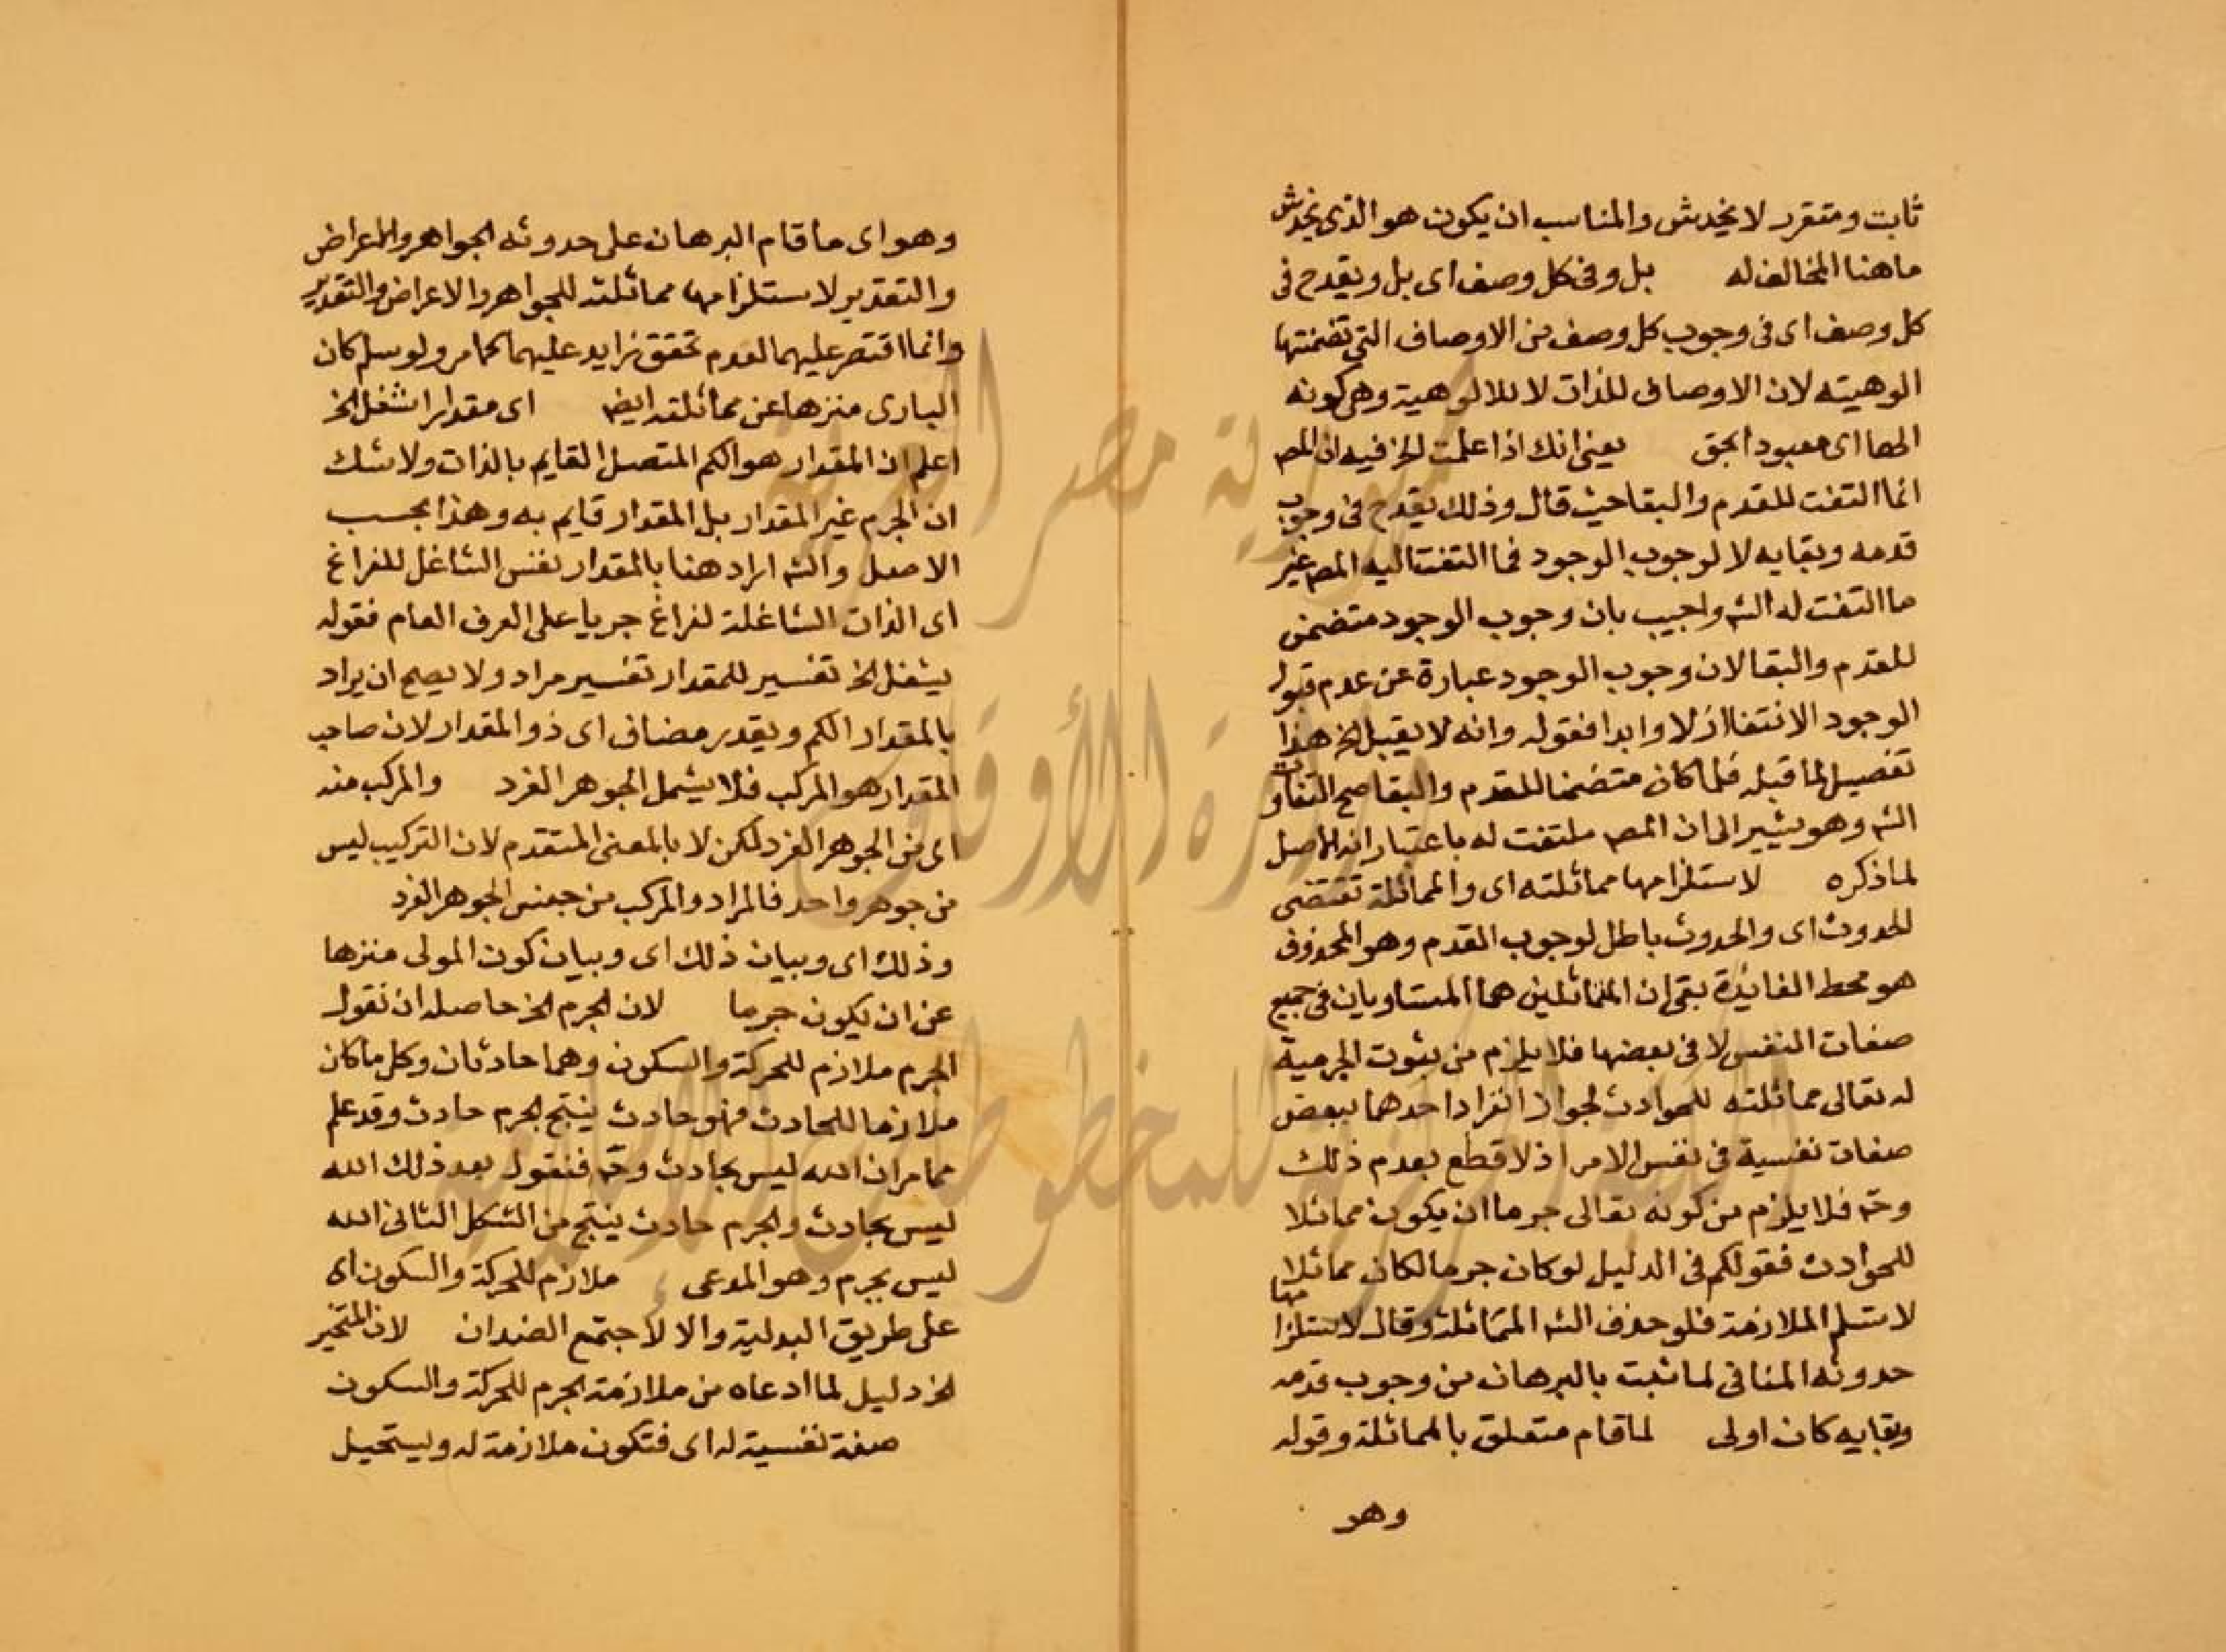 ثابت ومتقرر لا يخدش والمناسب ان يكون هو الذى يخدش
ما هنا المخالف له بل وفى كل وصف اى بل ويقدح فى
كل وصف اى فى وجوب كل وصف من الاوصاف التى تضمنتها
الوهيته لان الاوصاف للذات لا للالوهية وهى كونه
الها اى معبودا بحق يعنى انك اذا علمت الخ فيه ان المص
انما التفت للقدم والبقا حيث قال وذلك يقدح فى وجوب
قدمه وبقايه لا لوجوب الوجود فما التفت اليه المص غير
ما التفت له الشه واجيب بان وجوب الوجود متضمن
للقدم والبقا لان وجوب الوجود عبارة عن عدم قبول
الوجود الانتفا ازلا وابدا فقوله وانه لا يقبل الخ هذا
تفصيل لما قبله فلما كان متضمنا للقدم والبقا صح التفات
الشه وهو يشير الى ان المص ملتفت له باعتبار انه الاصل
لما ذكره لاستلزامها مماثلته اى والمماثلة تقتضى
للحدوث اى والحدوث باطل لوجوب القدم وهو المحذوف
هو محط الفايدة بقى ان المتماثلين هما المتساويان فى جميع
صفات النفس لا فى بعضها فلا يلزم من ثبوت الجرمية
له تعالى مماثلته للحوادث لجواز انفراد احدهما ببعض
صفات نفسية فى نفس الامر اذ لا قطع بعدم ذلك
وحّ فلا يلزم من كونه تعالى جرما ان يكون مماثلا
للحوادث فقولكم فى الدليل لو كان جرما لكان مماثلا
لا نسلم الملازمة فلو حذف الشه المماثلة وقال لاستلزامها
حدوثه المنافى لما ثبت بالبرهان من وجوب قدمه
وبقايه كان اولى لما قام متعلق بالمماثلة وقوله
وهو
وهو اى ما قام البرهان على حدوثه الجواهر والاعراض
والتقدير لاستلزامها مماثلته للجواهر والاعراض والتقدير
وانما اقتصر عليهما لعدم تحقق زايد عليهما كما مر ولو سلم كان
البارى منزها عن مماثلته ايض اى مقدارا شغل الخ
اعلم ان المقدار هو الكم المتصل القايم بالذات ولا شك
ان الجرم غير المقدار بل المقدار قايم به وهذا بحسب
الاصل والشه اراد هنا بالمقدار نفس الشاغل للفراغ
اى الذات الشاغلة لفراغ جريا على العرف العام فقوله
يشغل الخ تفسير للمقدار تفسير مراد ولا يصح ان يراد
بالمقدار الكم ويقدر مضاف اى ذو المقدار لان صاحب
المقدار هو المركب فلا يشمل الجوهر الفرد والمركب منه
اى من الجوهر الفرد لكن لا بالمعنى المتقدم لان التركيب ليس
من جوهر واحد فالمراد والمركب من جنس الجوهر الفرد
وذلك اى وبيان ذلك اى وبيان كون المولى منزها
عن ان يكون جرما لان الجرم الخ حاصله ان نقول
الجرم ملازم للحركة والسكون وهما حادثان وكل ما كان
ملازما للحادث فهو حادث ينتج الجرم حادث وقد علم
مما مر ان الله ليس بحادث وحّ فنقول بعد ذلك الله
ليس بحادث والجرم حادث ينتج من الشكل الثانى الله
ليس بجرم وهو المدعى ملازم للحركة والسكون اى
على طريق البدلية والا لاجتمع الضدان لان المتحيز
الخ دليل لما ادعاه من ملازمة الجرم للحركة والسكون
صفة نفسية له اى فتكون ملازمة له ويستحيل